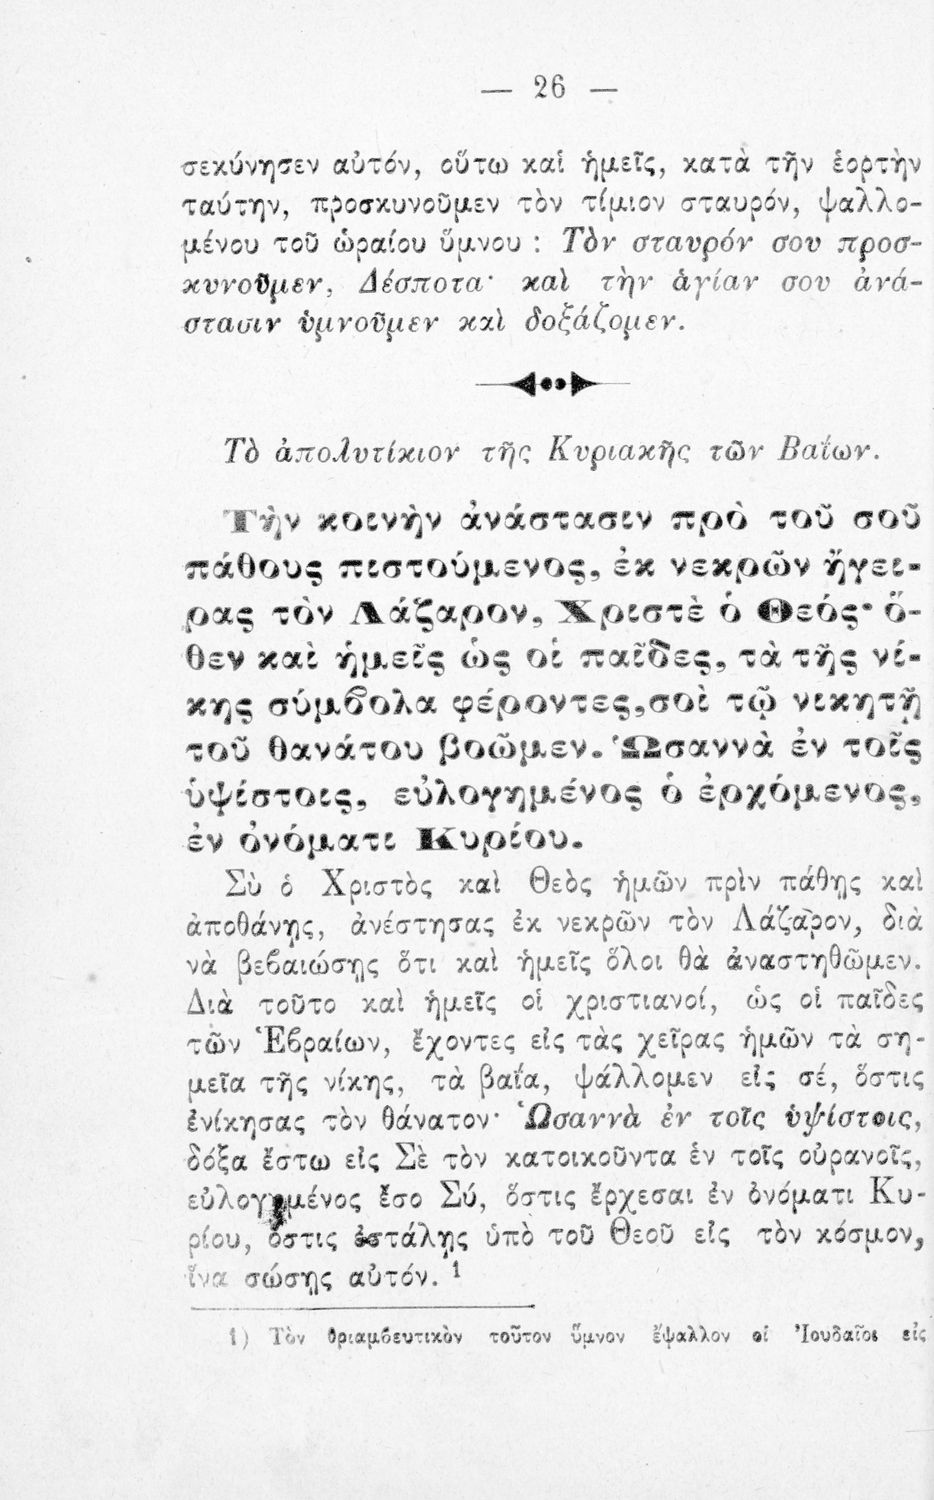 — 26 —
σεκύνησεν αὐτόν, οὕτω καὶ ἡμεῖς, κατὰ τῆν ἑορτὴν
ταύτην, προσκυνοῦμεν τὸν τίμιον σταυρόν, ψαλλο-
μένου τοῦ ὡραίου ὕμνου : Τὸν σταυρόν σου προσ-
κυνοῦμεν, Δέσποτα· καὶ τὴν ἁγίαν σου ἀνά-
στασιν ὑμνοῦμεν καὶ δοξάζομεν.
Τὸ ἀπολυτίκιον τῆς Κυριακῆς τῶν Βαΐων.
Τὴν κοινὴν ἀνάστασιν πρὸ τοῦ σοῦ
πάθους πιστούμενος, ἐκ νεκρῶν ἤγει-
ρας τὸν Λάζαρον, Χριστὲ ὁ Θεός· ὅ-
θεν καὶ ἡμεῖς ὡς οἱ παῖδες, τὰ τῆς νί-
κης σύμβολα φέροντες,σοὶ τῷ νικητῇ
τοῦ θανάτου βοῶμεν. Ὡσαννὰ ἐν τοῖς
ὑψίστοις, εὐλογημένος ὁ ἐρχόμενος,
ἐν ὀνόματι Κυρίου.
Σὺ ὁ Χριστὸς καὶ Θεὸς ἡμῶν πρὶν πάθῃς καὶ
ἀποθάνῃς, ἀνέστησας ἐκ νεκρῶν τὸν Λάζαρον, διὰ
νὰ βεβαιώσῃς ὅτι καὶ ἡμεῖς ὅλοι θὰ ἀναστηθῶμεν.
Διὰ τοῦτο καὶ ἡμεῖς οἱ χριστιανοί, ὡς οἱ παῖδες
τῶν Ἑβραίων, ἔχοντες εἰς τὰς χεῖρας ἡμῶν τὰ ση-
μεῖα τῆς νίκης, τὰ βαΐα, ψάλλομεν εἰς σέ, ὅστις
ἐνίκησας τὸν θάνατον· Ὡσαννὰ ἐν τοῖς ὑψίστοις,
δόξα ἔστω εἰς Σὲ τὸν κατοικοῦντα ἐν τοῖς οὐρανοῖς,
εὐλογημένος ἔσο Σύ, ὅστις ἔρχεσαι ἐν ὀνόματι Κυ-
ρίου, ὅστις ἐστάλης ὑπὸ τοῦ Θεοῦ εἰς τὸν κόσμον,
ἵνα σώσῃς αὐτόν. 1
1) Τὸν θριαμβευτικὸν τοῦτον ὕμνον ἔψαλλον οἱ Ἰουδαῖοι εἰς